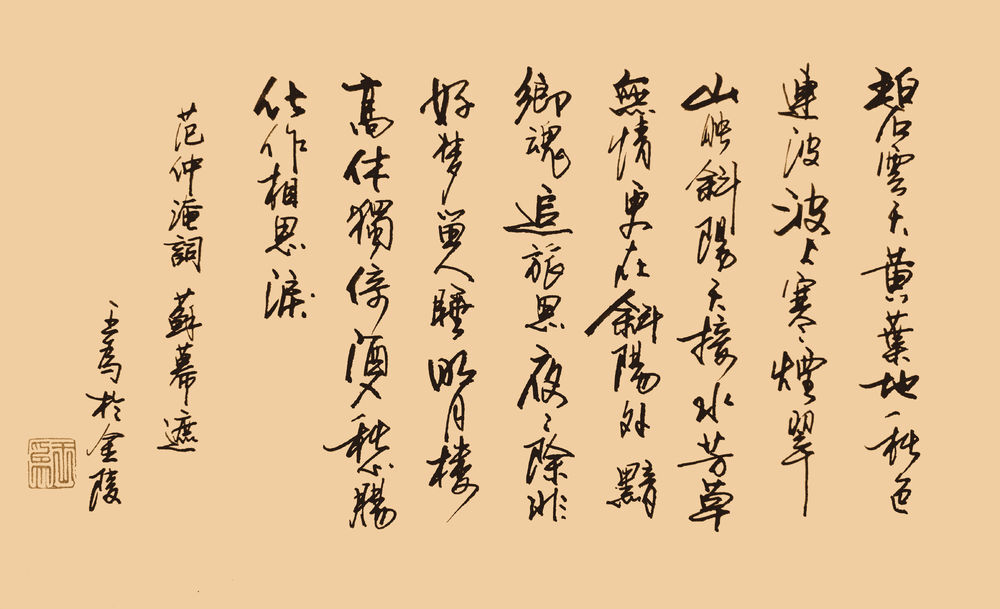 碧雲天黄葉地秋色
連波波上寒煙翠
山映斜陽天接水芳草
無情更在斜陽外黯
鄉魂追旅思夜〻除非
好梦留人睡明月楼
高休獨倚酒入愁腸
化作相思淚
范仲淹詞 蘇幕遮
於金陵